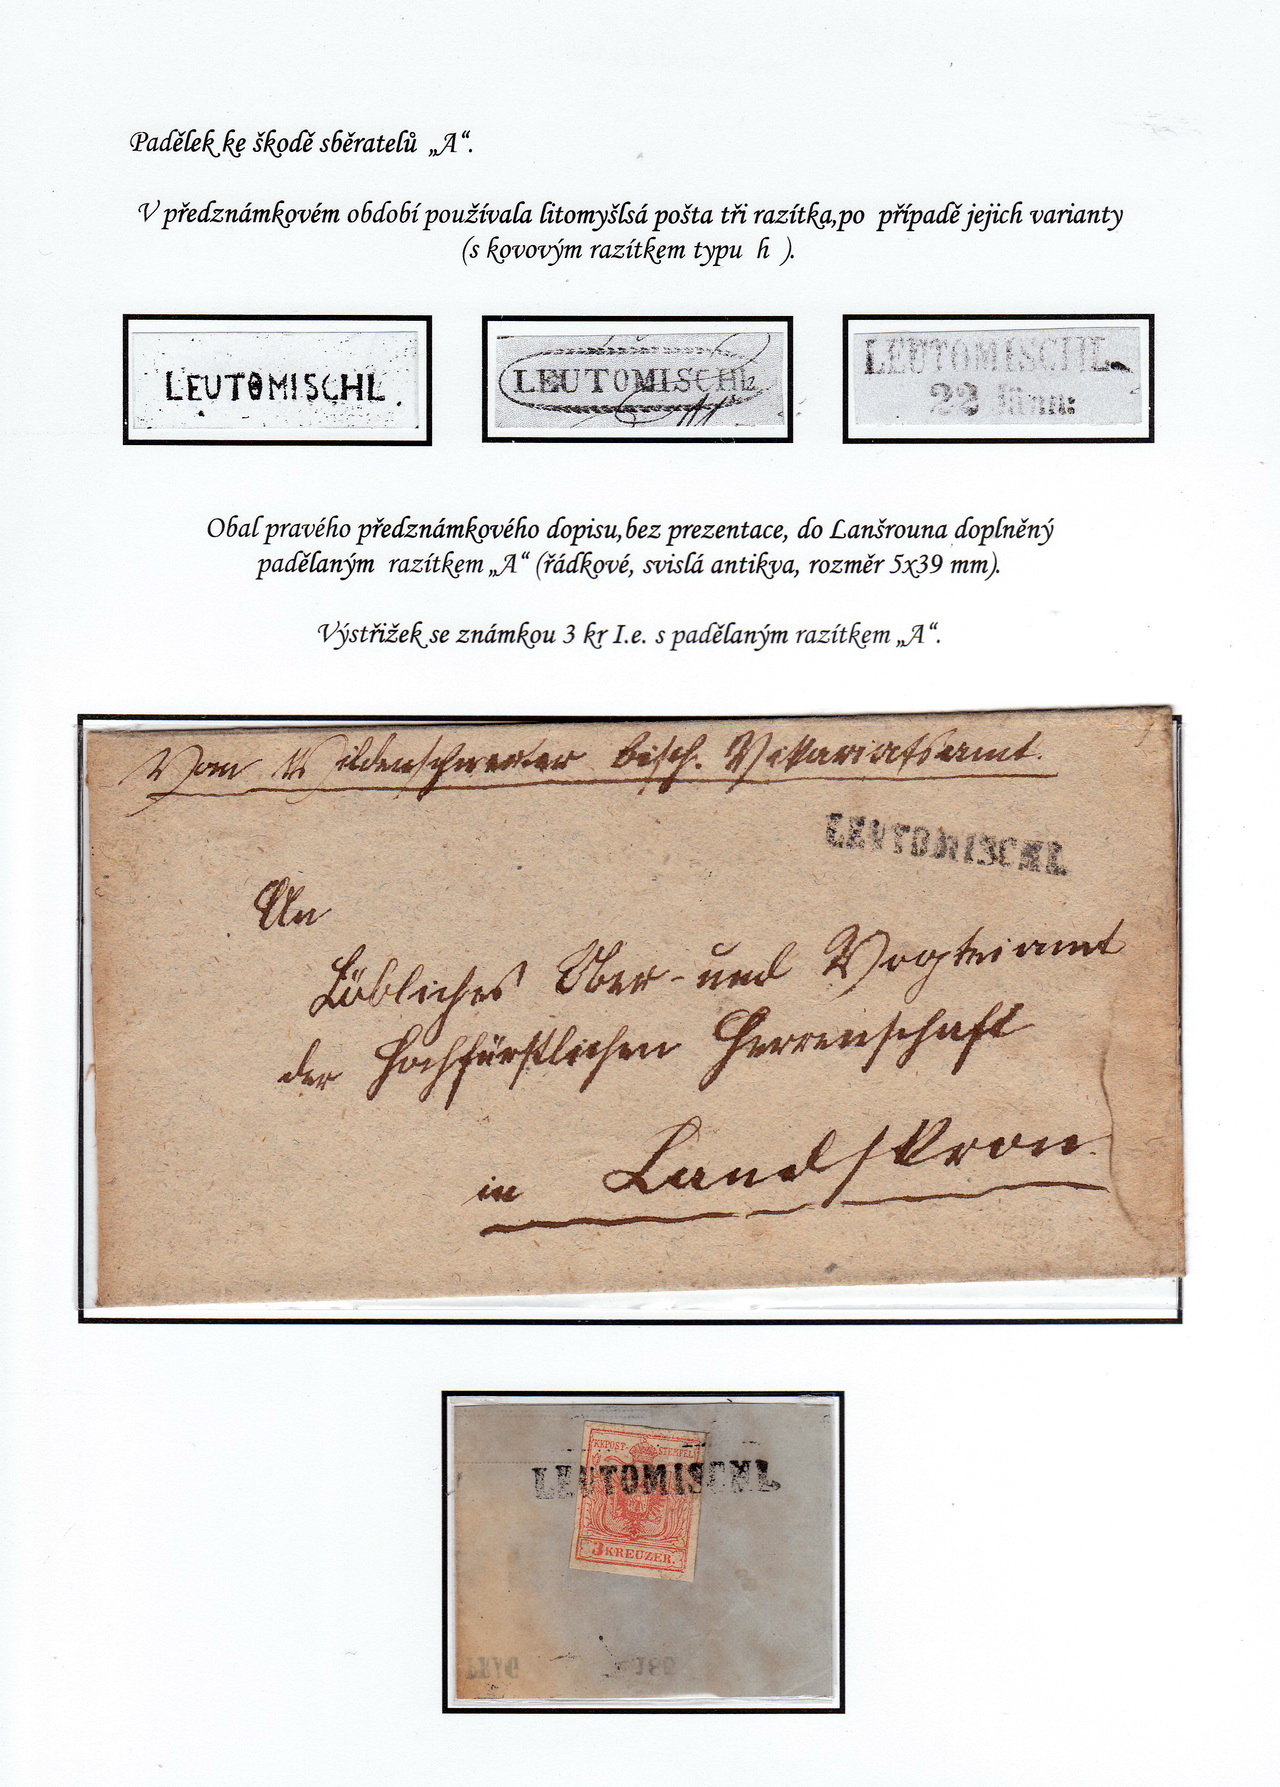 Padělek ke škodě sběratelů „A“.
V předznámkovém období používala litomyšlsá pošta tři razítka,po případě jejich varianty
(s kovovým razítkem typu h ).
LEUTOMISCHL.
LEUTOMISCHL
LEUTOMISCHL
22 Jänn:
Obal pravého předznámkového dopisu,bez prezentace, do Lanšrouna doplněný
padělaným razítkem „A“ (řádkové, svislá antikva, rozměr 5x39 mm).
Výstřižek se známkou 3 kr I.e. s padělaným razítkem „A“.
Vom Wildenschwerter bisch. Vikariatsamt.
LEUTOMISCHL
An
Löbliches Ober- und Vogteiamt
der Hochfürstlichen Herrenschaft
in Landskron.
KKPOST-STEMPEL
LEUTOMISCHL
3 KREUZER.